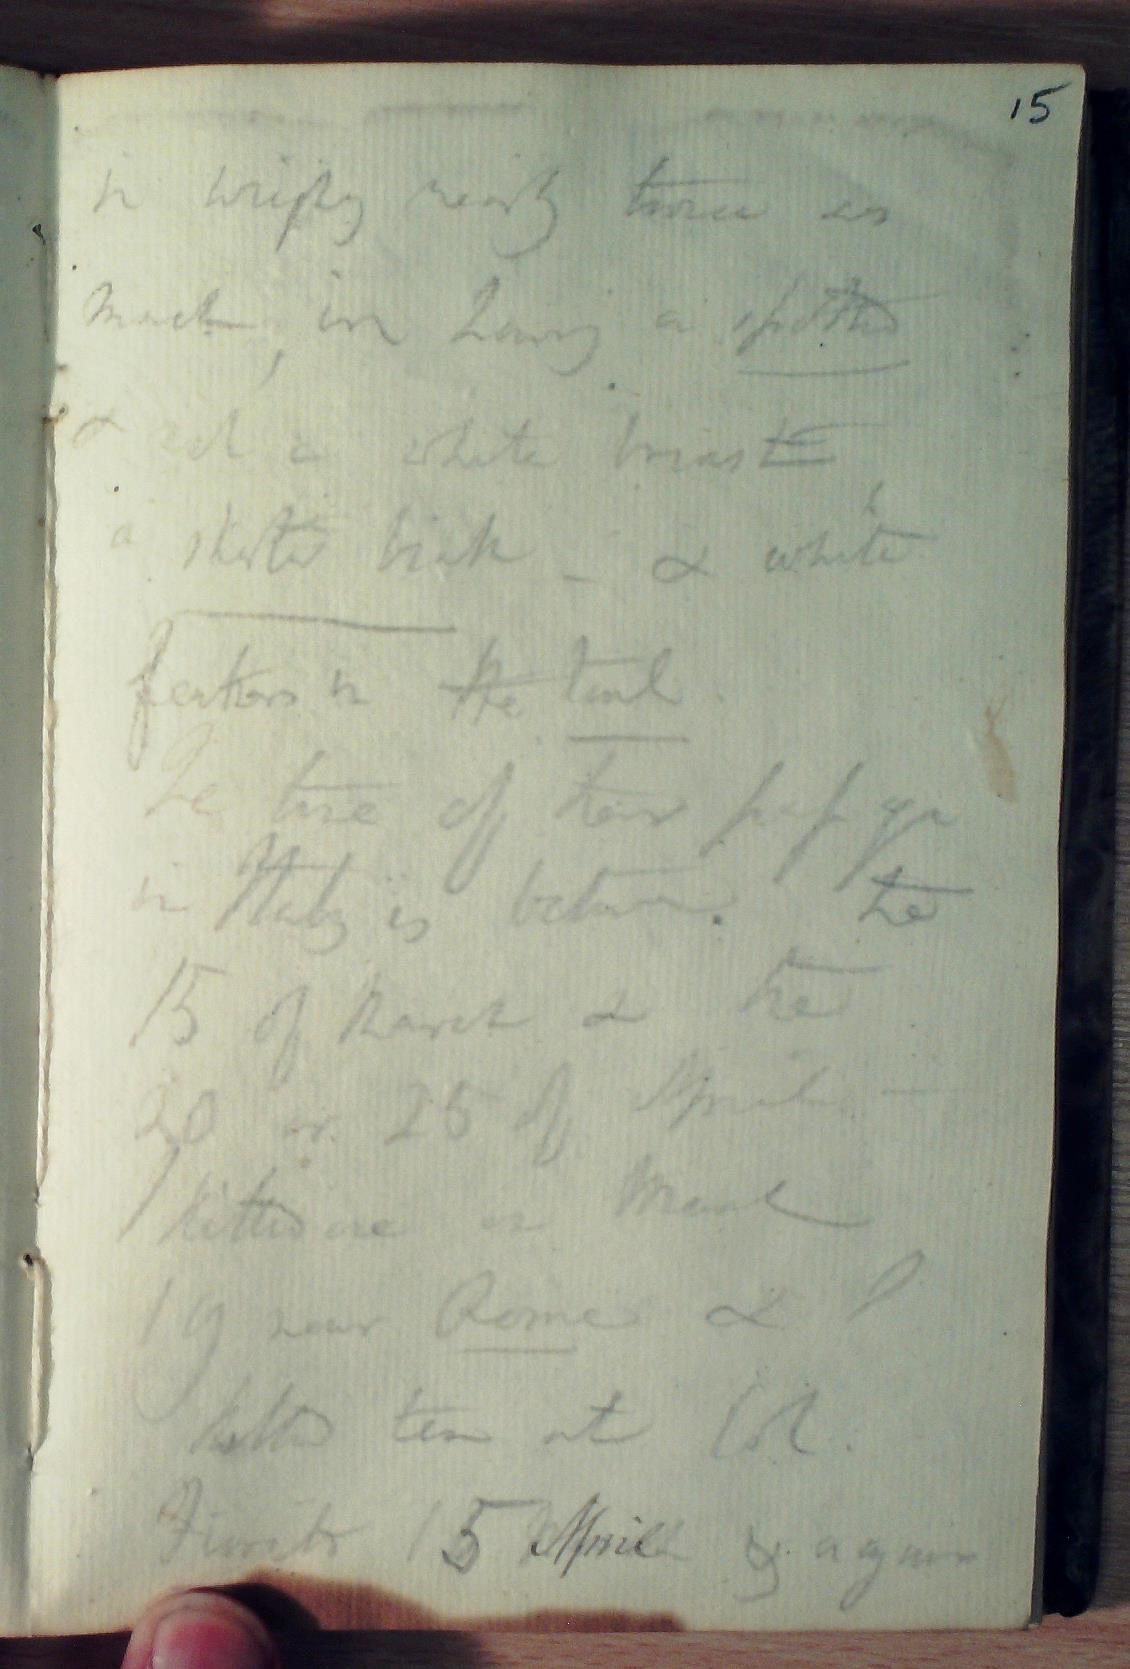 15
in weighing nearly twice as
much, in having a spotted
& not a white breast
a shorter beak - & white
feathers in the tail.
The time of their passage
in Italy is between the
15 of March & the
20 or 25 of April -
killed one in March
19 near Rome &
killed ten at
15 April & again